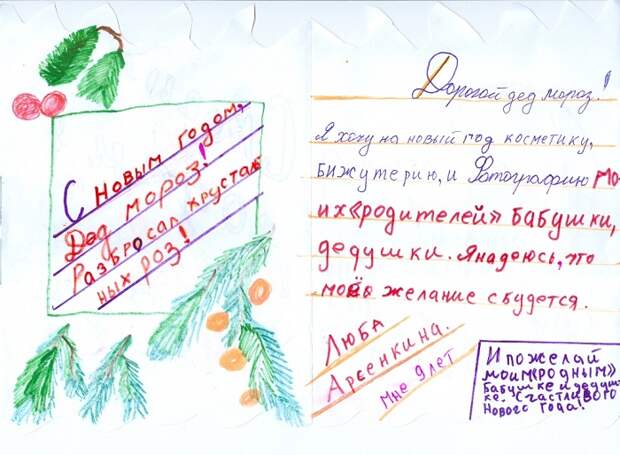 С новым годом,
Дед мороз!
Разбросал хрусталь
ных роз!
Дорогой дед мороз!
Я хочу на новый год косметику,
бижутерию, и Фотографию мо-
их «родителей» бабушки,
дедушки. Я надеюсь, что
моё желание сбудется.
Люба
Арсенкина.
мне 9 лет
И пожелай
моим «родным»
бабушке и дедуш
ке. Счастливого
Нового года!